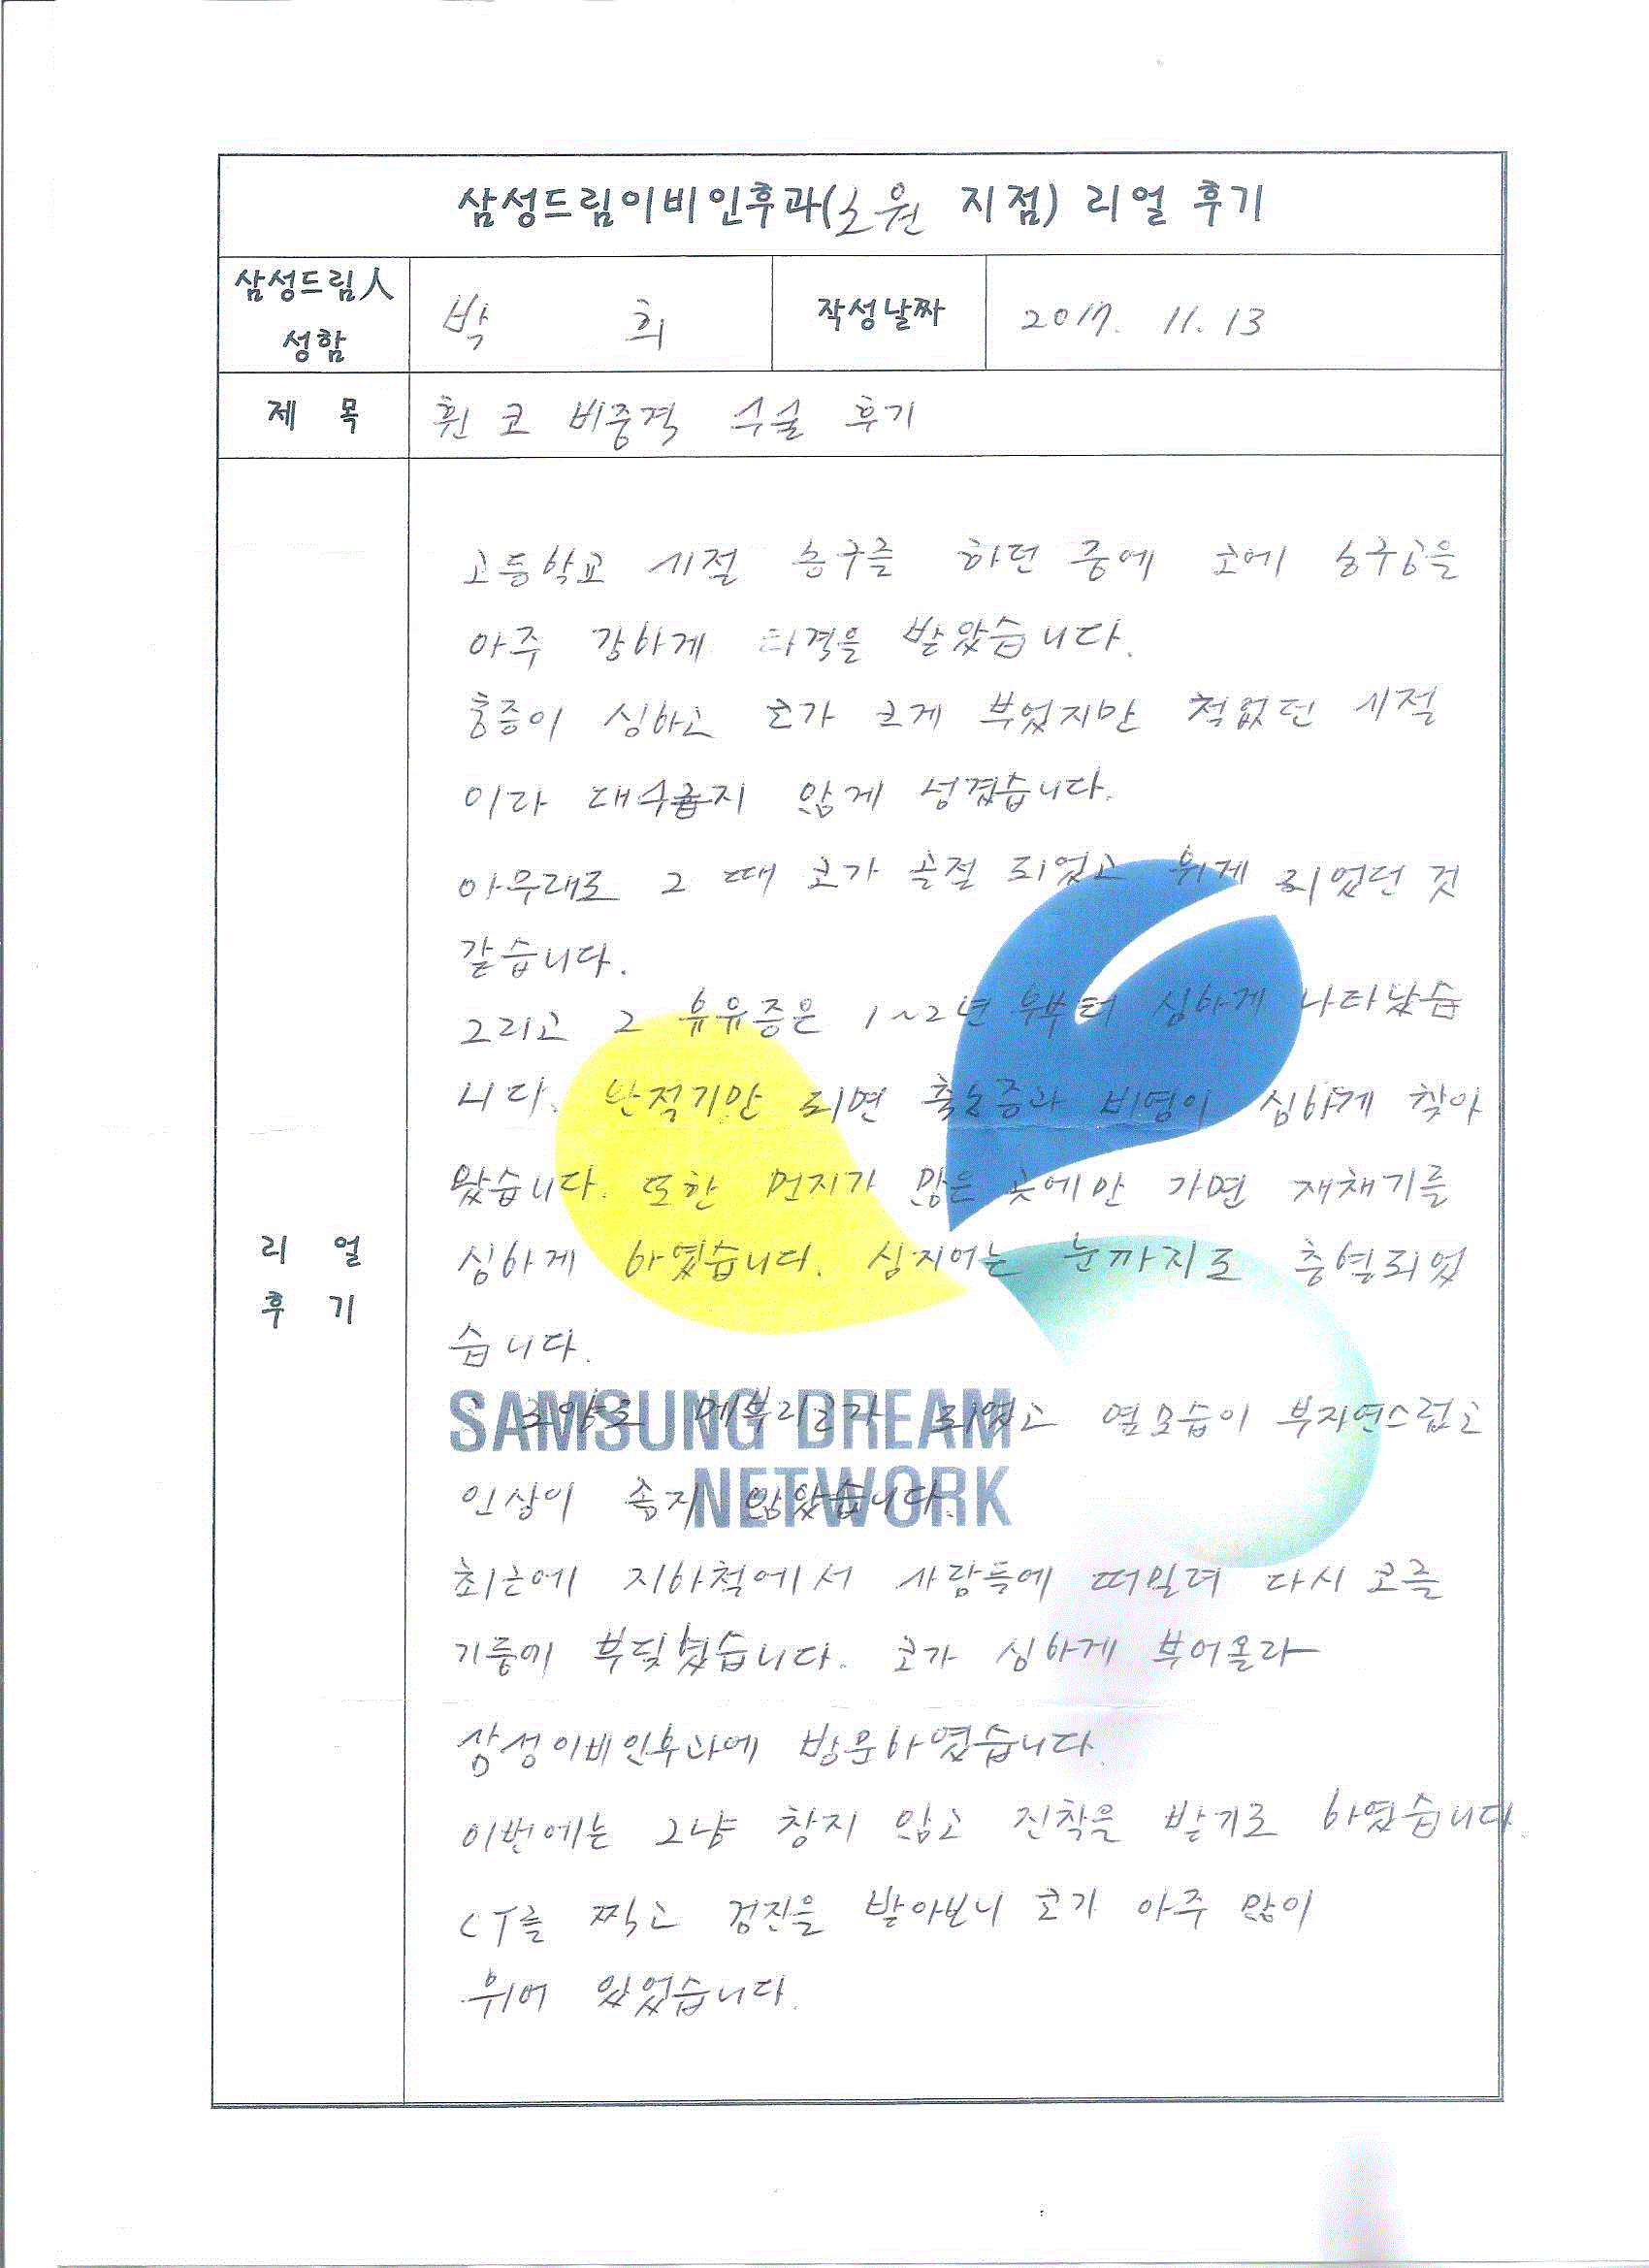 삼성드림이비인후과(노원 지점) 리얼 후기
삼성드림人 성함 박 희 작성날짜 2017. 11. 13
제 목 휜 코 비중격 수술 후기
리 얼 후 기
고등학교 시절 농구를 하던 중에 코에 농구공을
아주 강하게 타격을 받았습니다.
통증이 심하고 코가 크게 부었지만 철없던 시절
이라 대수롭지 않게 넘겼습니다.
아무래도 그 때 코가 골절 되었고 휘게 되었던 것
같습니다.
그리고 그 휴유증은 1~2년 후부터 심하게 나타났습
니다. 환절기만 되면 축농증과 비염이 심하게 찾아
왔습니다. 또한 먼지가 많은 곳에만 가면 재채기를
심하게 하였습니다. 심지어는 눈까지도 충혈되었
습니다.
모양도 메부리코가 되었고 옆모습이 부자연스럽고
인상이 좋지 않았습니다.
SAMSUNG DREAM
NETWORK
최근에 지하철에서 사람들에 떠밀려 다시 코를
기둥에 부딪혔습니다. 코가 심하게 부어올라
삼성이비인후과에 방문하였습니다.
이번에는 그냥 참지 않고 진찰을 받기로 하였습니다.
CT를 찍고 검진을 받아보니 코가 아주 많이
휘어 있었습니다.